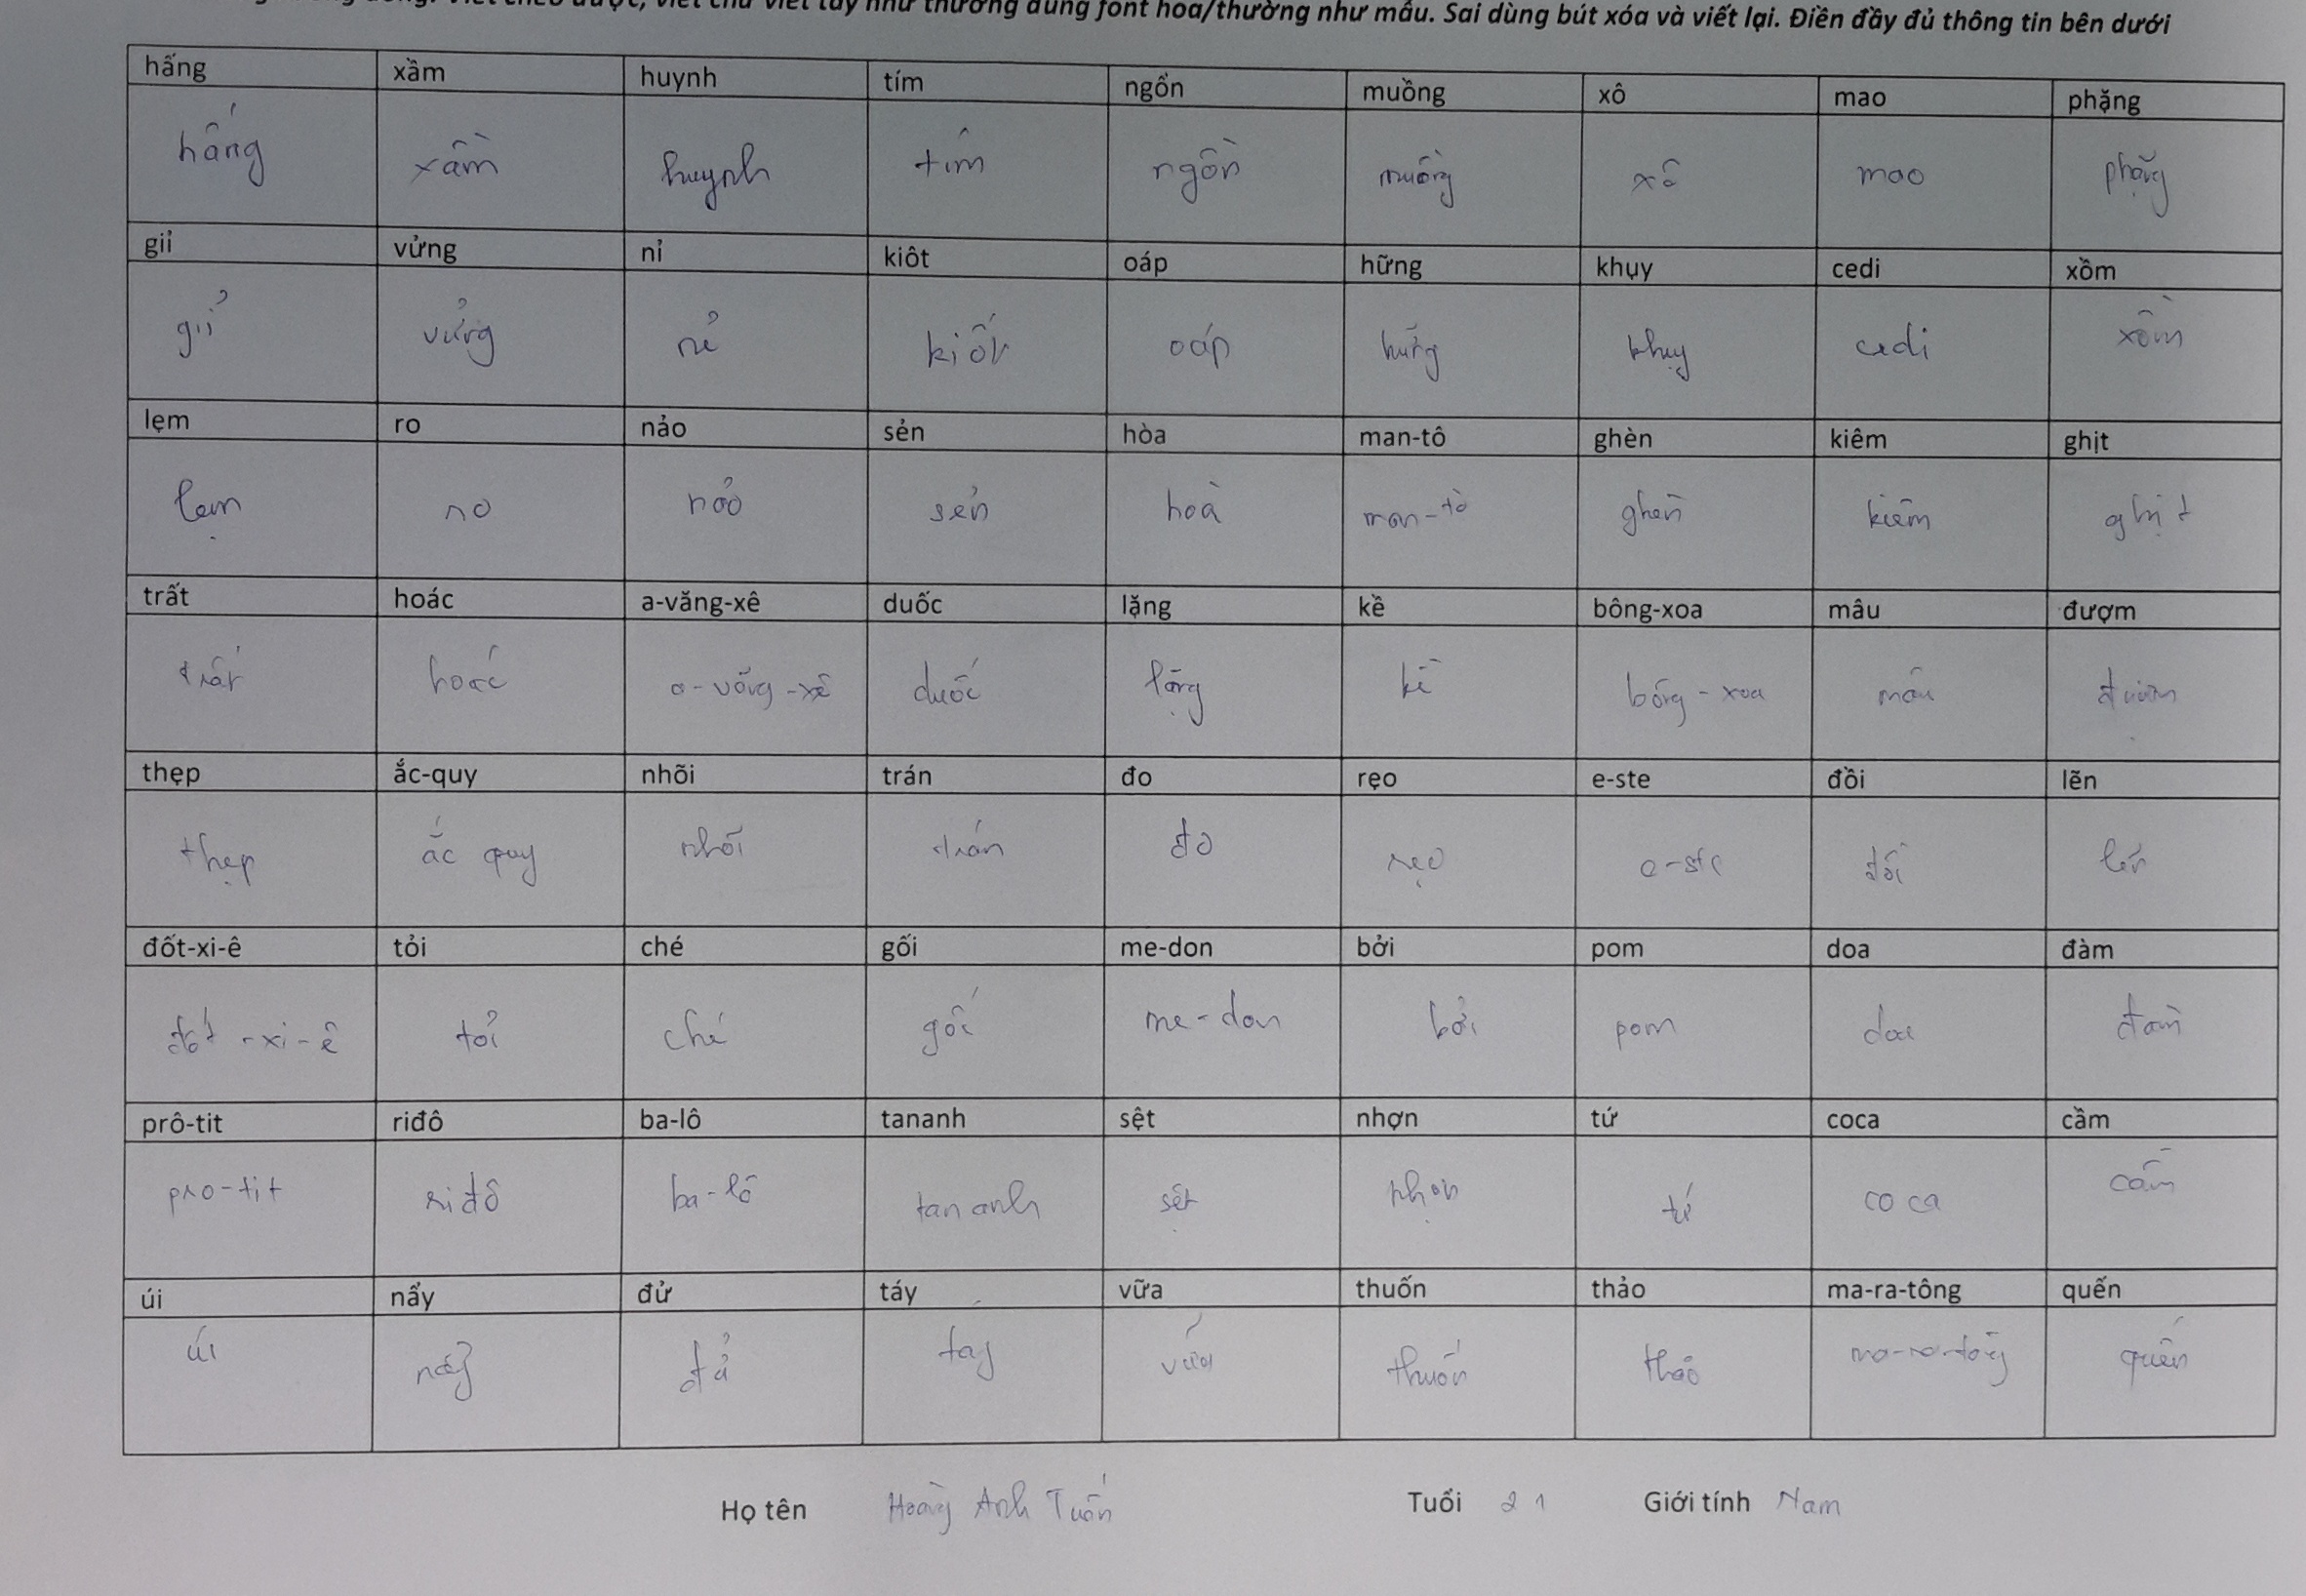 viết chữ viết tay như thường dùng font hoa/thường như mẫu. Sai dùng bút xóa và viết lại. Điền đầy đủ thông tin bên dưới
hấng xầm huynh tím ngổn muồng xô mao phặng
hấng xầm huynh tím ngồn muồng xô mao phặng
giỉ vửng nỉ kiôt oáp hững khụy cedi xồm
giỉ vửng nỉ kiốt oáp hững khụy cedi xồm
lẹm ro nảo sẻn hòa man-tô ghèn kiêm ghịt
lẹm ro nảo sẻn hoà man-tô ghèn kiêm ghịt
trất hoác a-văng-xê duốc lặng kề bông-xoa mâu đượm
trất hoác a-văng-xê duốc lặng kề bông-xoa mâu đượm
thẹp ắc-quy nhõi trán đo rẹo e-ste đồi lẽn
thẹp ắc quy nhõi trán đo rẹo e-ste đồi lẽn
đốt-xi-ê tỏi ché gối me-don bởi pom doa đàm
đốt-xi-ê tỏi ché gối me-don bởi pom doa đàm
prô-tit riđô ba-lô tananh sệt nhợn tứ coca cầm
pro-tit riđô ba-lô tananh sệt nhợn tứ coca cầm
úi nẩy đử táy vữa thuốn thảo ma-ra-tông quến
úi nẩy đử táy vữa thuốn thảo ma-ra-tông quến
Họ tên Hoàng Anh Tuấn Tuổi 21 Giới tính Nam